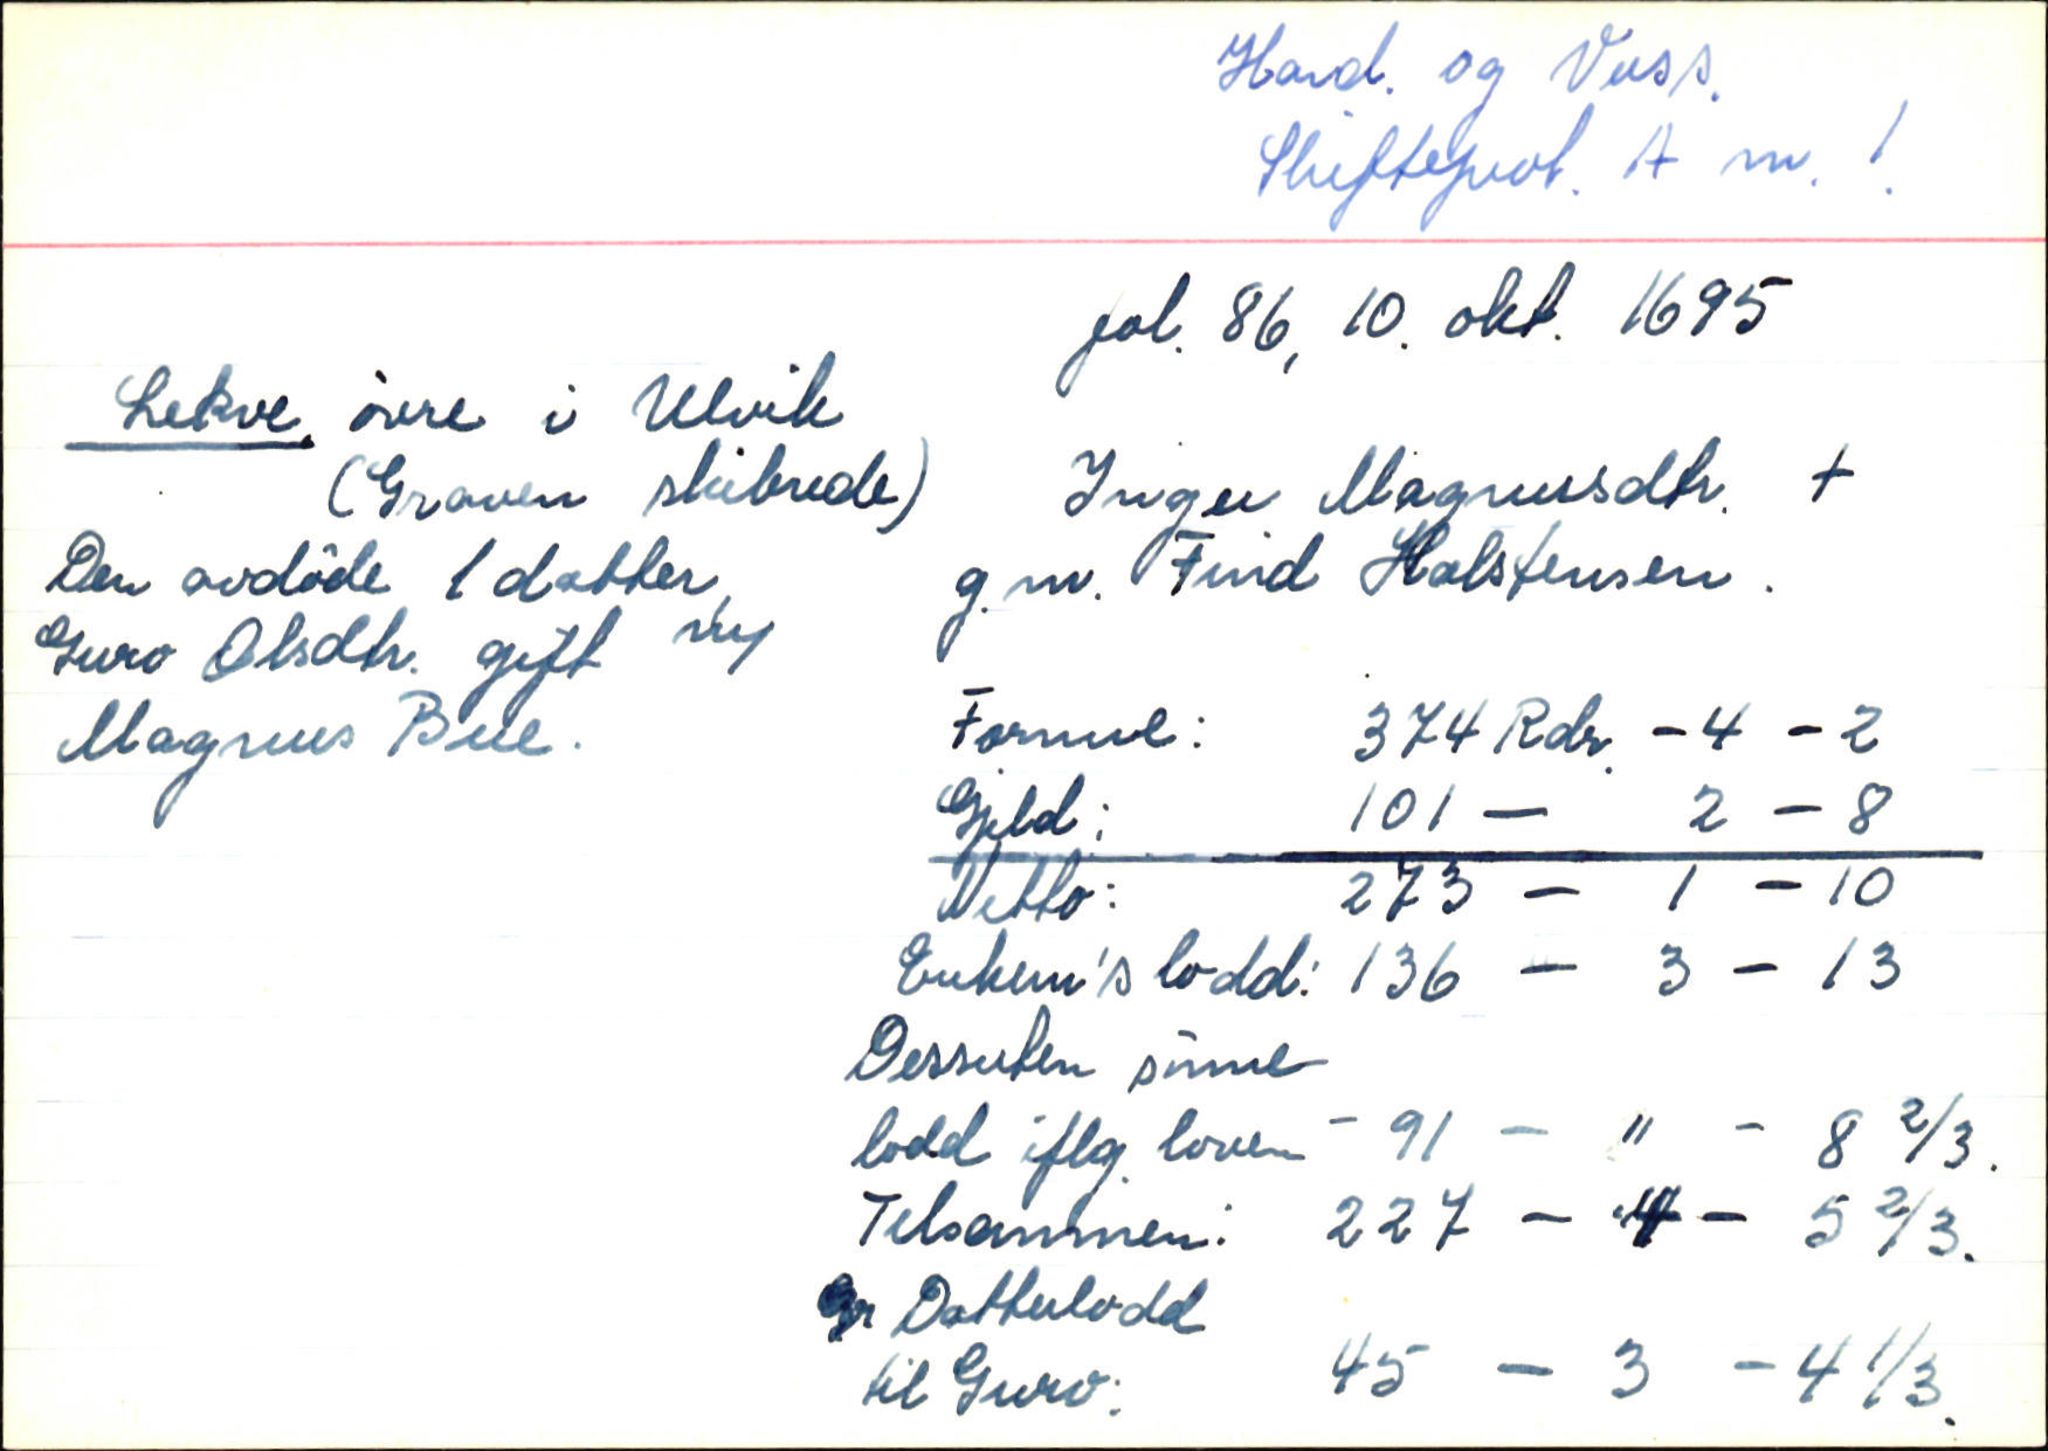 Hard. og Voss.
Skifteprot. A nr. 1.
fol. 86, 10. okt. 1695
Lekve, övre i Ulvik
(Graven skibrede)
Inger Magnusdtr. +
g. m. Find Halstensen.
Den avdöde 1 datter,
Guro Olsdtr. gift m/
Magnus Bue.
Formue: 374 Rdr. - 4 - 2
Gjeld: 101 - 2 - 8
Netto: 273 - 1 - 10
Enkem's lodd: 136 - 3 - 13
Dessuten sönne
lodd iflg. loven - 91 - " - 8 2/3.
Tilsammen: 227 - 4 - 5 2/3.
Datterlodd
til Guro: 45 - 3 - 4 1/3.